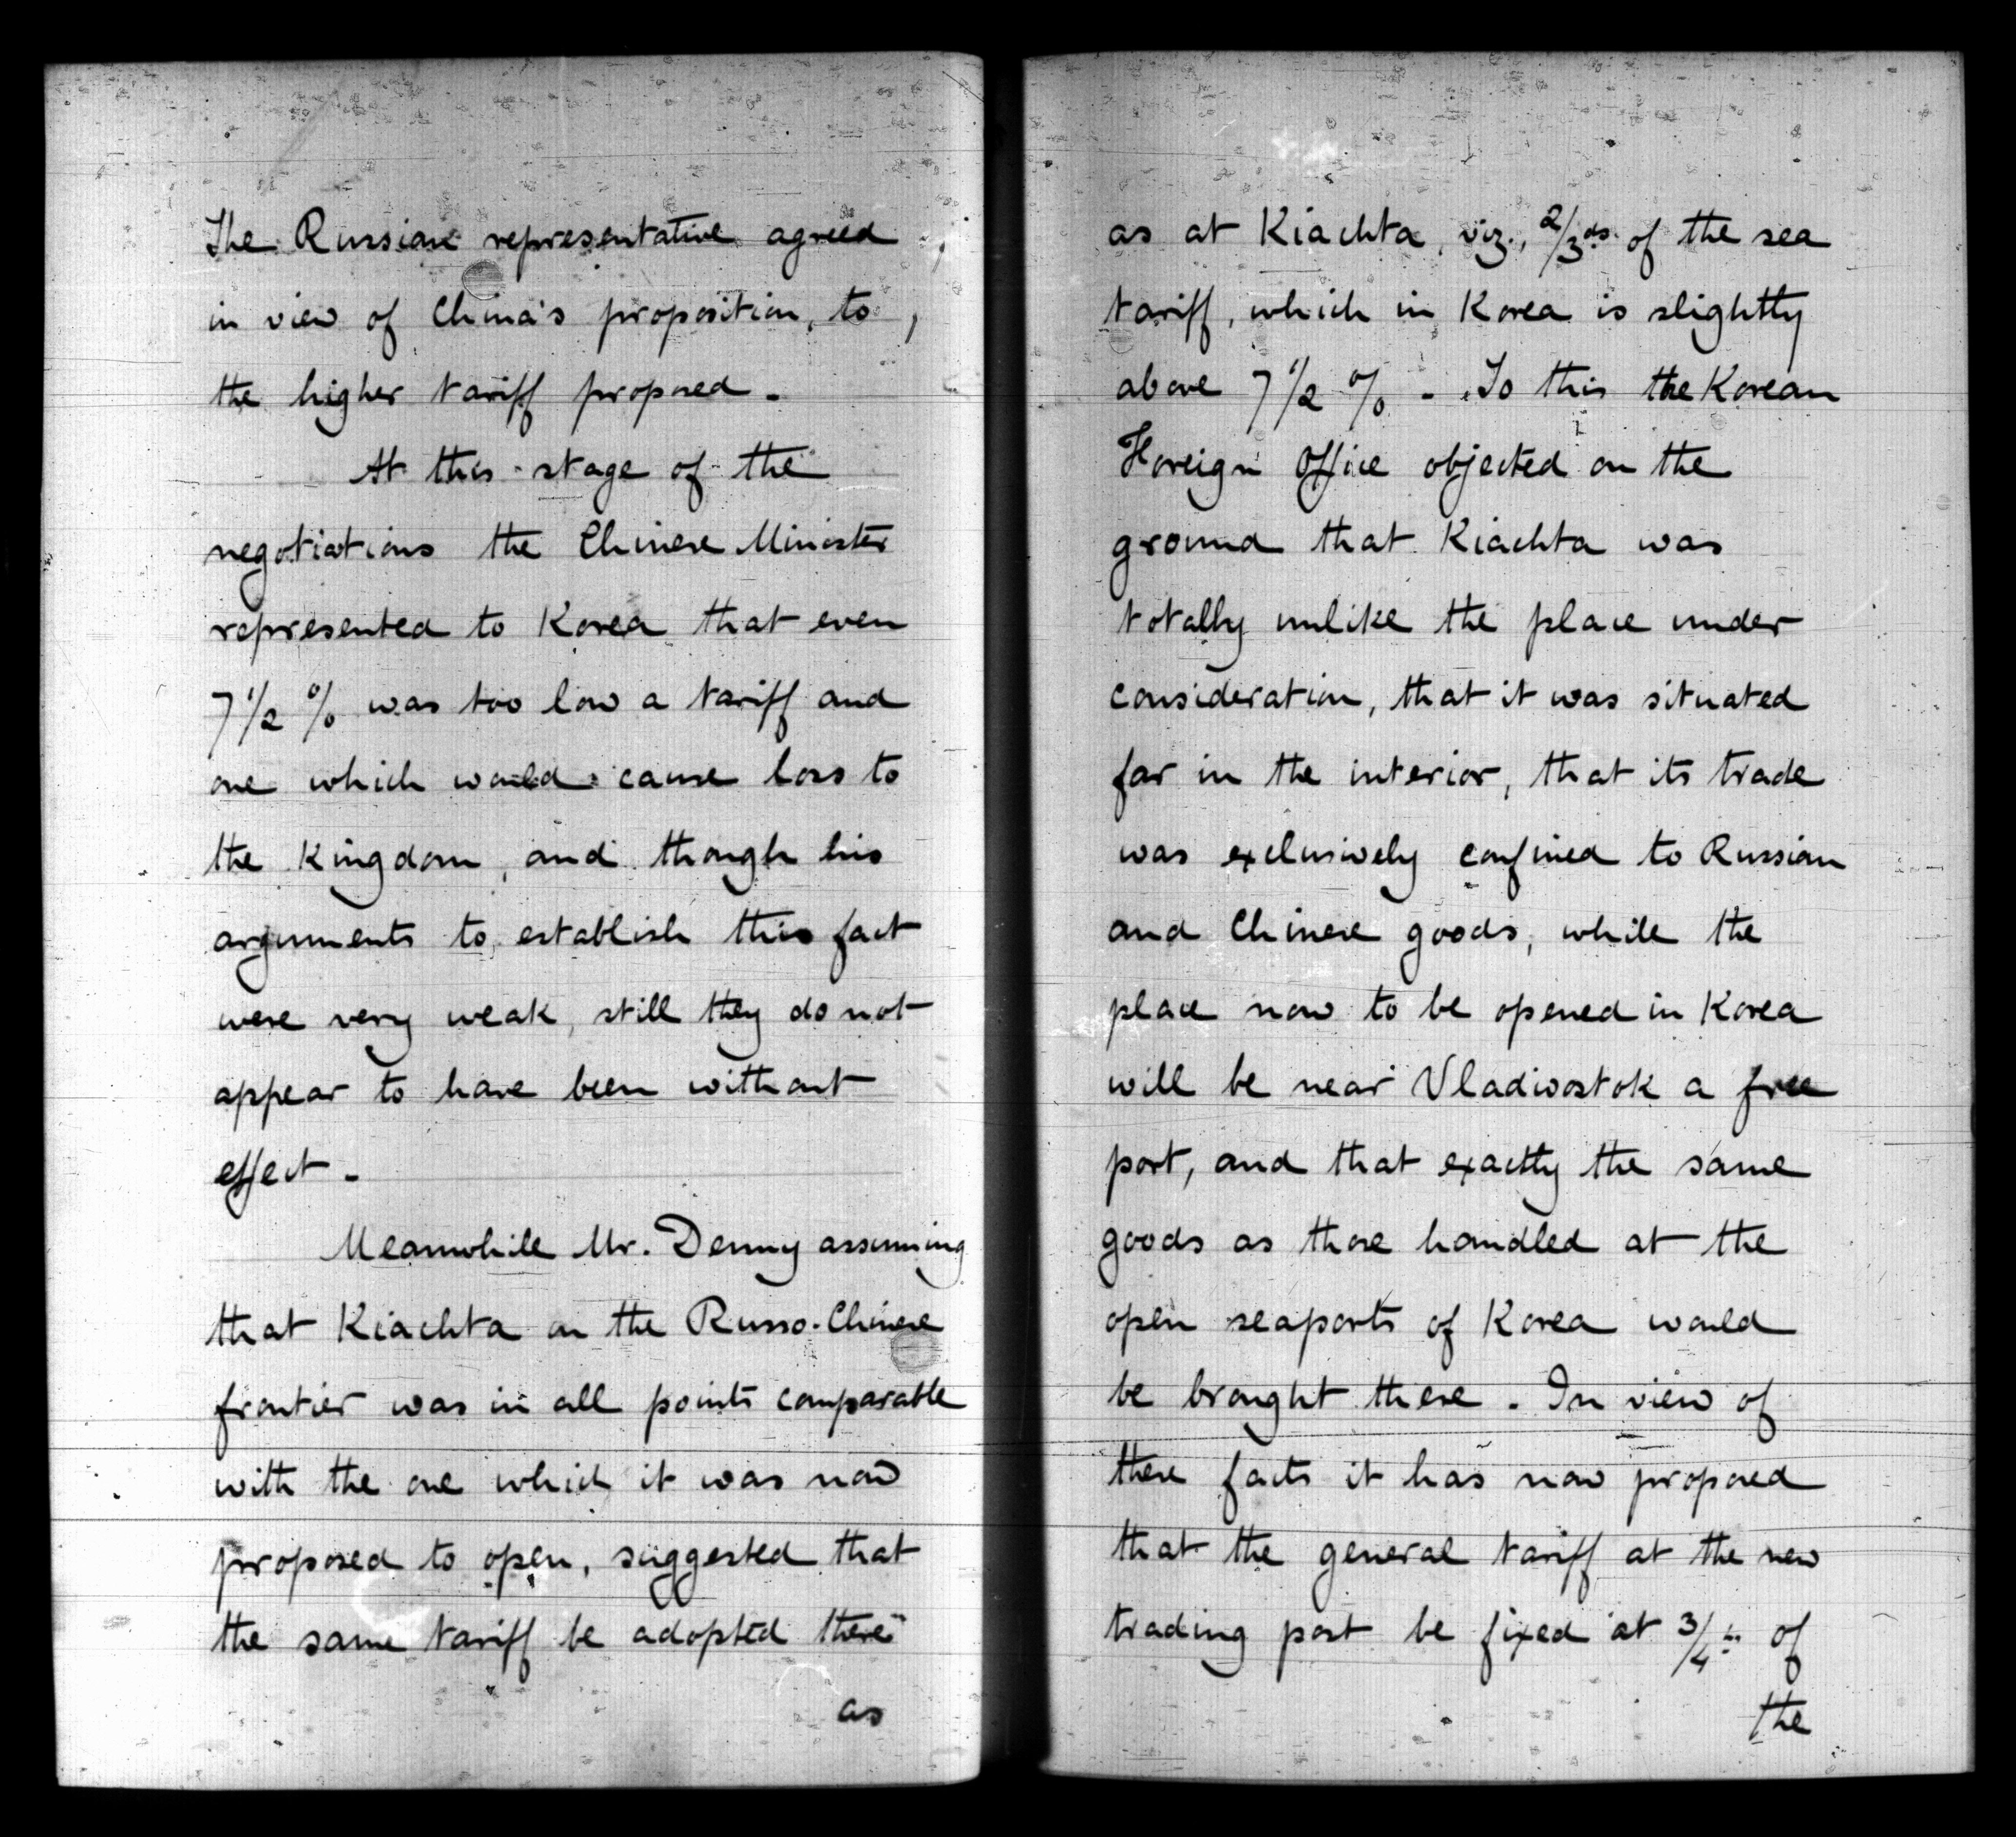 The Russian representative agreed
in view of China's proposition, to
the higher tariff proposed -
At this stage of the
negotiations the Chinese Minister
represented to Korea that even
7 1/2 % was too low a tariff and
one which would cause loss to
the Kingdom, and though his
arguments to establish this fact
were very weak, still they do not
appear to have been without
effect -
Meanwhile Mr. Denny assuming
that Kiachta on the Russo-Chinese
frontier was in all points comparable
with the one which it was now
proposed to open, suggested that
the same tariff be adopted there
as
as at Kiachta, viz., 2/3ds. of the sea
tariff, which in Korea is slightly
above 7 1/2 % - To this the Korean
Foreign Office objected on the
ground that Kiachta was
totally unlike the place under
consideration, that it was situated
far in the interior, that its trade
was exclusively confined to Russian
and Chinese goods, while the
place now to be opened in Korea
will be near Vladivostok a free
port, and that exactly the same
goods as those handled at the
open seaports of Korea would
be brought there. In view of
these facts it has now proposed
that the general tariff at the new
trading post be fixed at 3/4 of
the